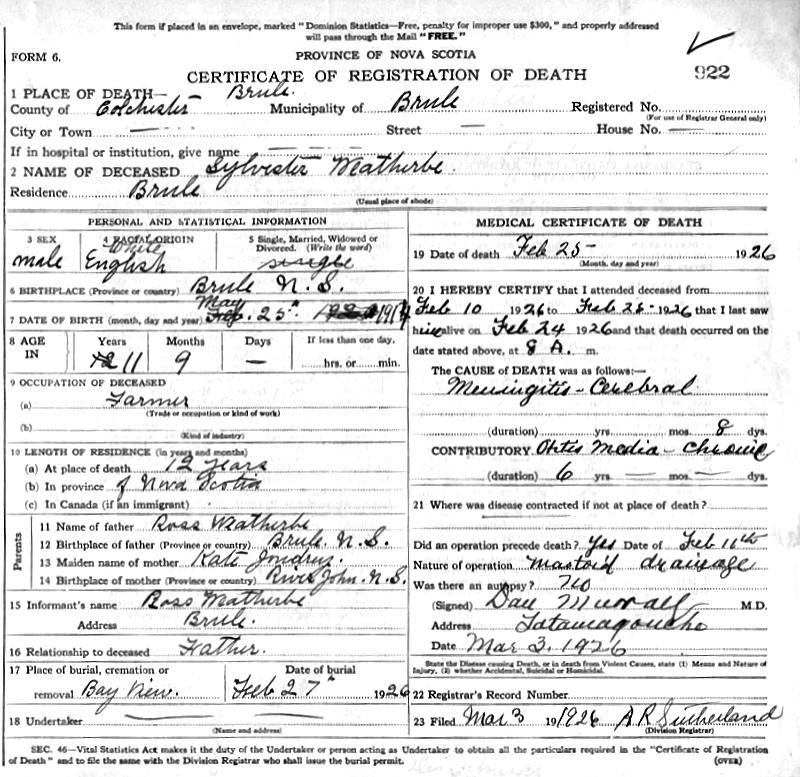 This form if placed in an envelope, marked "Dominion Statistics—Free, penalty for improper use $300," and properly addressed
will pass through the Mail "FREE."
FORM 6.
PROVINCE OF NOVA SCOTIA
CERTIFICATE OF REGISTRATION OF DEATH
922
1 PLACE OF DEATH— Brule.
County of Colchester Municipality of Brule Registered No.
(For use of Registrar General only)
City or Town — Street — House No. —
If in hospital or institution, give name
2 NAME OF DECEASED Sylvester Weatherbe.
Residence Brule
(Usual place of abode)
PERSONAL AND STATISTICAL INFORMATION
3 SEX 4 RACIAL ORIGIN 5 Single, Married, Widowed or
Divorced. (Write the word)
White
male English single
6 BIRTHPLACE (Province or country) Brule N.S.
May
7 DATE OF BIRTH (month, day and year) 25th 1914
8 AGE IN Years Months Days If less than one day,
11 9 — hrs. or min.
9 OCCUPATION OF DECEASED
(a) Farmer
(Trade or occupation or kind of work)
(b)
(Kind of industry)
10 LENGTH OF RESIDENCE (in years and months)
(a) At place of death 12 years
(b) In province of Nova Scotia
(c) In Canada (if an immigrant)
Parents
11 Name of father Ross Weatherbe
12 Birthplace of father (Province or country) Brule. N.S.
13 Maiden name of mother Kate
14 Birthplace of mother (Province or country) River John. N.S.
15 Informant's name Ross Weatherbe
Address Brule.
16 Relationship to deceased Father.
17 Place of burial, cremation or Date of burial
removal Bay View. Feb 27th 1926
18 Undertaker —
(Name and address)
MEDICAL CERTIFICATE OF DEATH
19 Date of death Feb 25- 1926
(Month, day and year)
20 I HEREBY CERTIFY that I attended deceased from
Feb 10 1926 to Feb 25- 1926 that I last saw
him alive on Feb 24 1926 and that death occurred on the
date stated above, at 8 A. m.
The CAUSE of DEATH was as follows:—
Meningitis - Cerebral
(duration) yrs. mos. 8 dys.
CONTRIBUTORY. Otitis Media - Chronic
(duration) 6 yrs. — mos. — dys.
21 Where was disease contracted if not at place of death?
Did an operation precede death? Yes Date of Feb 11th
Nature of operation Mastoid drainage
Was there an autopsy? No
(Signed) Dan Murray M.D.
Address Tatamagouche
Date Mar 3. 1926
State the Disease causing Death, or in death from Violent Causes, state (1) Means and Nature of
Injury, (2) whether Accidental, Suicidal or Homicidal.
22 Registrar's Record Number
23 Filed Mar 3 19 1926 A R Sutherland
(Division Registrar)
SEC. 46—Vital Statistics Act makes it the duty of the Undertaker or person acting as Undertaker to obtain all the particulars required in the "Certificate of Registration
of Death" and to file the same with the Division Registrar who shall issue the burial permit. (OVER)